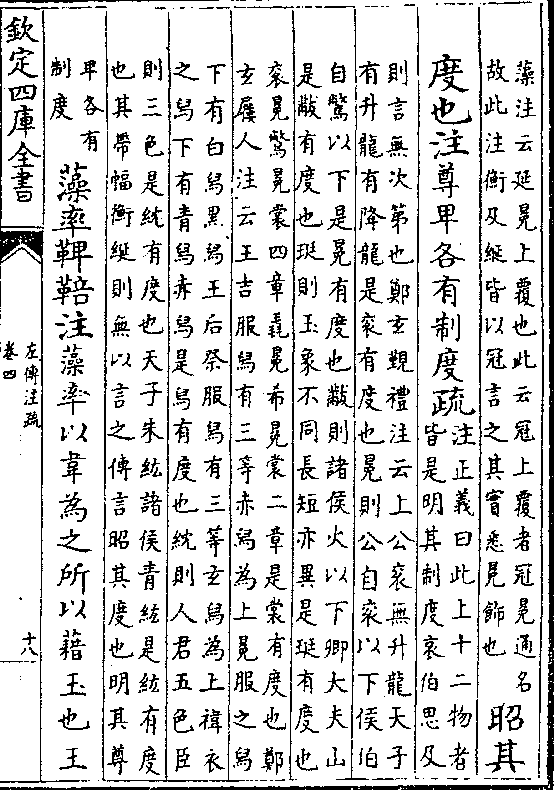 藻注云延冕上覆也此云冠上覆者冠冕通名
故此注衡及綖皆以冠言之其實悉冕飾也
昭其
度也注尊卑各有制度疏
注正義曰此上十二物者
皆是明其制度哀伯思及
則言無次第也鄭玄覲禮注云上公衮無升龍天子
有升龍有降龍是衮有度也冕則公自衮以下侯伯
自鷩以下是冕有度也黻則諸侯火以下卿大夫山
是黻有度也珽則玉象不同長短亦異是珽有度也
衮冕鷩冕裳四章毳冕希冕裳二章是裳有度也鄭
玄屨人注云王吉服舄有三等赤舄為上冕服之舄
下有白舄黑舄王后祭服舄有三等玄舄為上褘衣
之舄下有青舄赤舄是舄有度也紞則人君五色臣
則三色是紞有度也天子朱紘諸侯青紘是紘有度
也其帶幅衡綖則無以言之傳言昭其度也明其尊
卑各有
制度
藻率鞞鞛注藻率以韋為之所以藉玉也王
欽定四庫全書
左傳注疏
卷四
十八